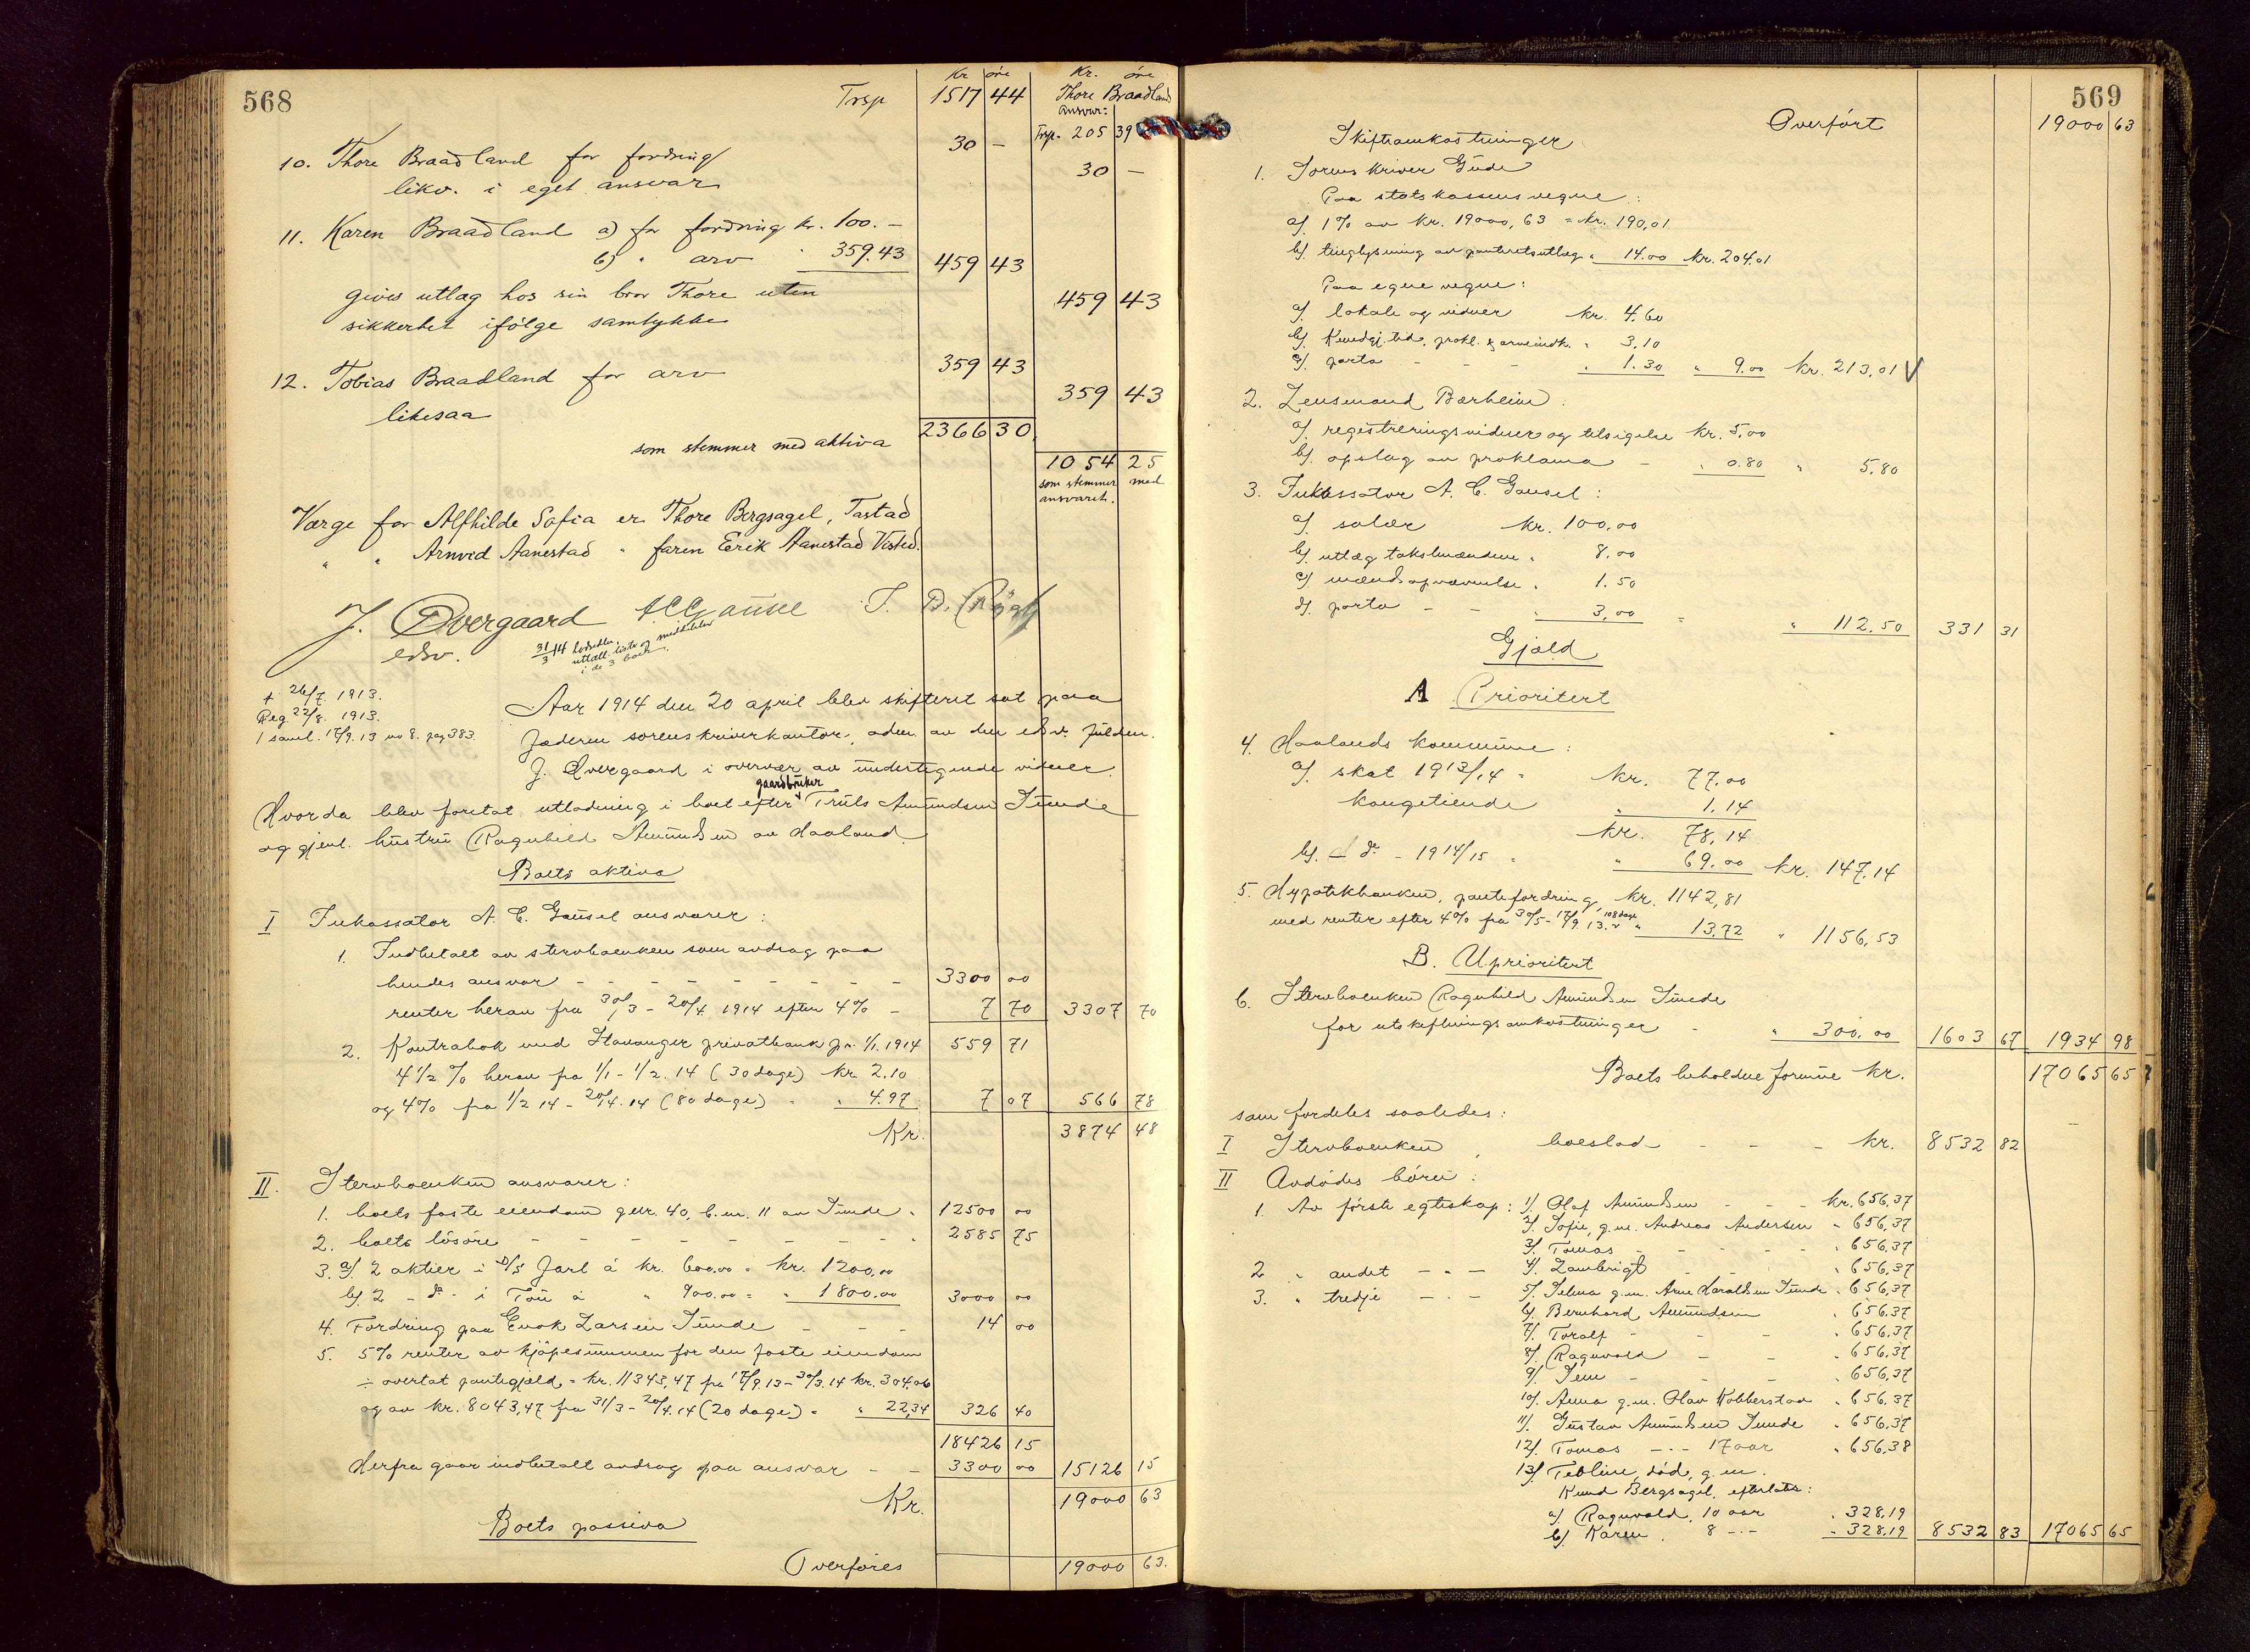 568
Kr øre Kr. øre
Trsp 1517 44 Thore Braadland
Ansvar:
Trsp. 205 39
10. Thore Braadland for fordring 30 –
likv. i eget ansvar 30 –
11. Karen Braadland a) for fordring kr. 100.–
b) " arv " 359.43 459 43
gives utlæg hos sin bror Thore uten 459 43
sikkerhet ifølge samtykke
12. Tobias Braadland for arv 359 43
likesaa 359 43
som stemmer med aktiva 2366 30
1054 25
som stemmer med
ansvaret.
Værge for Alfhilde Sofia er Thore Bergsagel, Tastad
" " Arnvid Aanestad " faren Erik Aanestad Visted.
J. Overgaard A C Gausel T. B.
edsv.
31/3 14 lodsedler,
utlatt. liste og meddelelser
i de 3 boer.
+ 26/7. 1913.
Reg 22/8. 1913.
1 saml. 17/9. 13 no 8. pag 383.
Aar 1914 den 20 april blev skifteret sat paa
Jæderen sorenskriverkontor, adm. av den edsv. fuldm.
J. Overgaard i overvær av undertegnede vidner.
Hvorda blev foretat utlodning i boet efter gaardbruker Truls Amundsen Tunde
og gjenl. hustru Ragnhild Amundsen av Haaland.
Boets aktiva
I Inkassator A. C. Gausel ansvarer:
1. Indbetalt av stervboenken som avdrag paa
hendes ansvar – – – – – – – – – 3300 00
renter herav fra 30/3 – 20/4 1914 efter 4% – 7 70 3307 70
2. Kontrabok med Stavanger privatbank pr. 1/1. 1914 559 71
4 1/2 % herav fra 1/1 – 1/2. 14 (30 dage) kr. 2.10
og 4% fra 1/2 14 – 20/4. 14 (80 dage) " " 4.97 7 07 566 78
Kr. 3874 48
II. Stervboenken ansvarer:
1. boets faste eiendom gnr. 40, b.nr. 11 av Tunde " 12500 00
2. boets løsøre – – – – – – – – 2585 75
3. a). 2 aktier i D/S Jarl á kr. 600,00 = kr. 1200,00
b). 2 – do – i Tou á " 900.00 = " 1800.00 3000 00
4. Fordring paa Enok Larsen Tunde – – – 14 00
5. 5% renter av kjøpesummen for den faste eiendom
÷ overtat pantegjeld = kr. 11343,47 fra 17/9. 13 – 30/3. 14 kr. 304,06
og av kr. 8043,47 fra 31/3 – 20/4. 14 (20 dage) = " 22,34 326 40
18426 15
Herfra gaar indbetalt avdrag paa ansvar – – 3300 00 15126 15
Kr. 19000 63
Boets passiva
Overføres 19000 63.
569
Overført 19000 63
Skifteomkostninger
1. Sorenskriver Gude
Paa statskassens vegne:
a). 1% av kr. 19000,63 = kr. 190,01
b). tinglysning av panteretsutlæg " 14.00 kr. 204.01
Paa egne vegne:
a). lokale og vidner kr. 4.60
b). Kundgj. tid. prokl. & arveindk. " 3.10
c). porto – – – " 1.30 " 9.00 kr. 213,01 V
2. Lensmand Bærheim:
a). registreringsvidner og tilsigelse kr. 5,00
b). opslag av proklama – " 0.80 " 5.80
3. Inkassator A. C. Gausel:
a). salær kr. 100,00
b). utlæg takstmændene " 8.00
c). mændsopnævnelse " 1.50
d). porto – – " 3,00 " 112.50 331 31
Gjæld
A Prioritert
4. Haalands kommune:
a). skat 1913/14 " kr. 77.00
kongetiende " 1.14
kr. 78,14
b). – do – 1914/15 " " 69.00 kr. 147.14
5. Hypotekbanken, pantefordring, kr. 1142,81
med renter efter 4% fra 30/5 – 17/9. 13. 108 dage " 13.72 " 1156,53
B. Uprioritert
6. Stervboenken Ragnhild Amundsen Tunde
for utskiftningsomkostninger – " 300.00 1603 67 1934 98
Boets beholdne formue kr. 17065 65
som fordeles saaledes:
I Stervboenken, boeslod – – – kr. 8532 82
II Avdødes børn:
1. Av første egteskap: 1). Olaf Amundsen – – – kr. 656,37
2). Sofie, g.m. Andreas Andersen " 656,37
3). Tomas – – – – " 656,37
2 " andet – " – 4). Lambrigt – – " 656,37
3. " tredje – " – 5). Selma g.m. Arne Haraldsen Tunde " 656,37
6). Bernhard Amundsen " 656.37
7). Toralf – – – " 656,37
8). Ragnvald – – " 656,37
9). Jens – – – " 656,37
10). Anna g.m. Olav Kobberstad " 656.37
11). Gustav Amundsen Tunde " 656.37
12). Tomas – " – 17 aar " 656,38
13). Tobline, død, g.m.
Knud Bergsagel, efterlatt:
a). Ragnvald, 10 aar " 328,19
b). Karen 8 – " – " 328,19 8532 83 17065 65